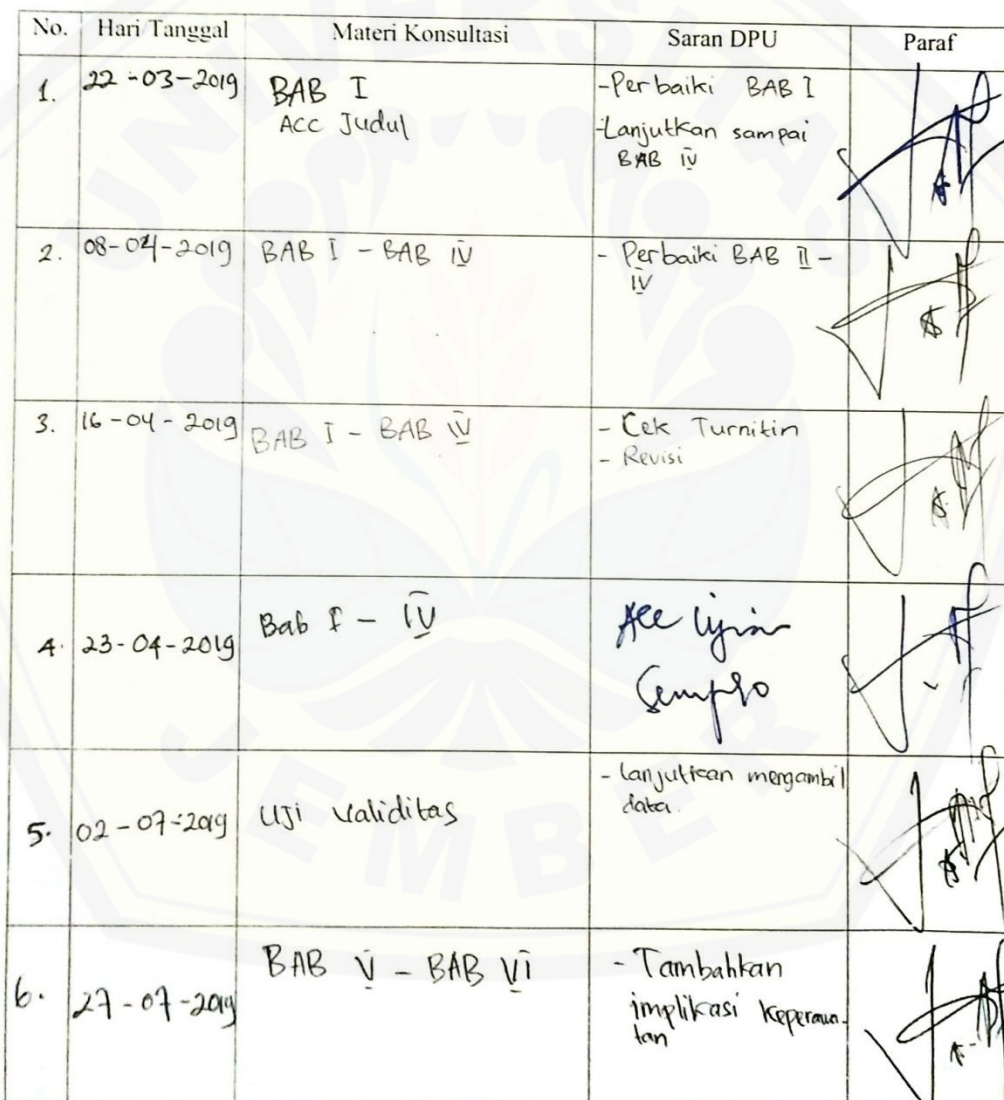 UNIVERSITAS
JEMBER
No. Hari/Tanggal Materi Konsultasi Saran DPU Paraf
1. 22-03-2019 BAB I -Perbaiki BAB I
ACC Judul -Lanjutkan sampai
BAB IV
2. 08-04-2019 BAB I - BAB IV - Perbaiki BAB II -
IV
3. 16-04-2019 BAB I - BAB IV - Cek Turnitin
- Revisi
4. 23-04-2019 Bab I - IV Acc Ujian
Sempro
5. 02-07-2019 Uji Validitas - Lanjutkan mengambil
data.
6. 27-07-2019 BAB V - BAB VI - Tambahkan
implikasi keperawa-
tan